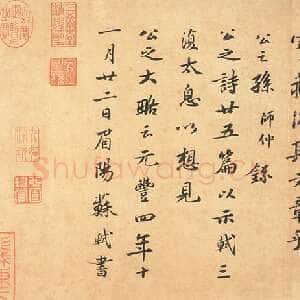 寶藏況其文章乎
公之孫師仲錄
公之詩廿五篇以示軾三
復太息以想見
公之大略云元豐四年十
一月廿二日眉陽蘇軾書